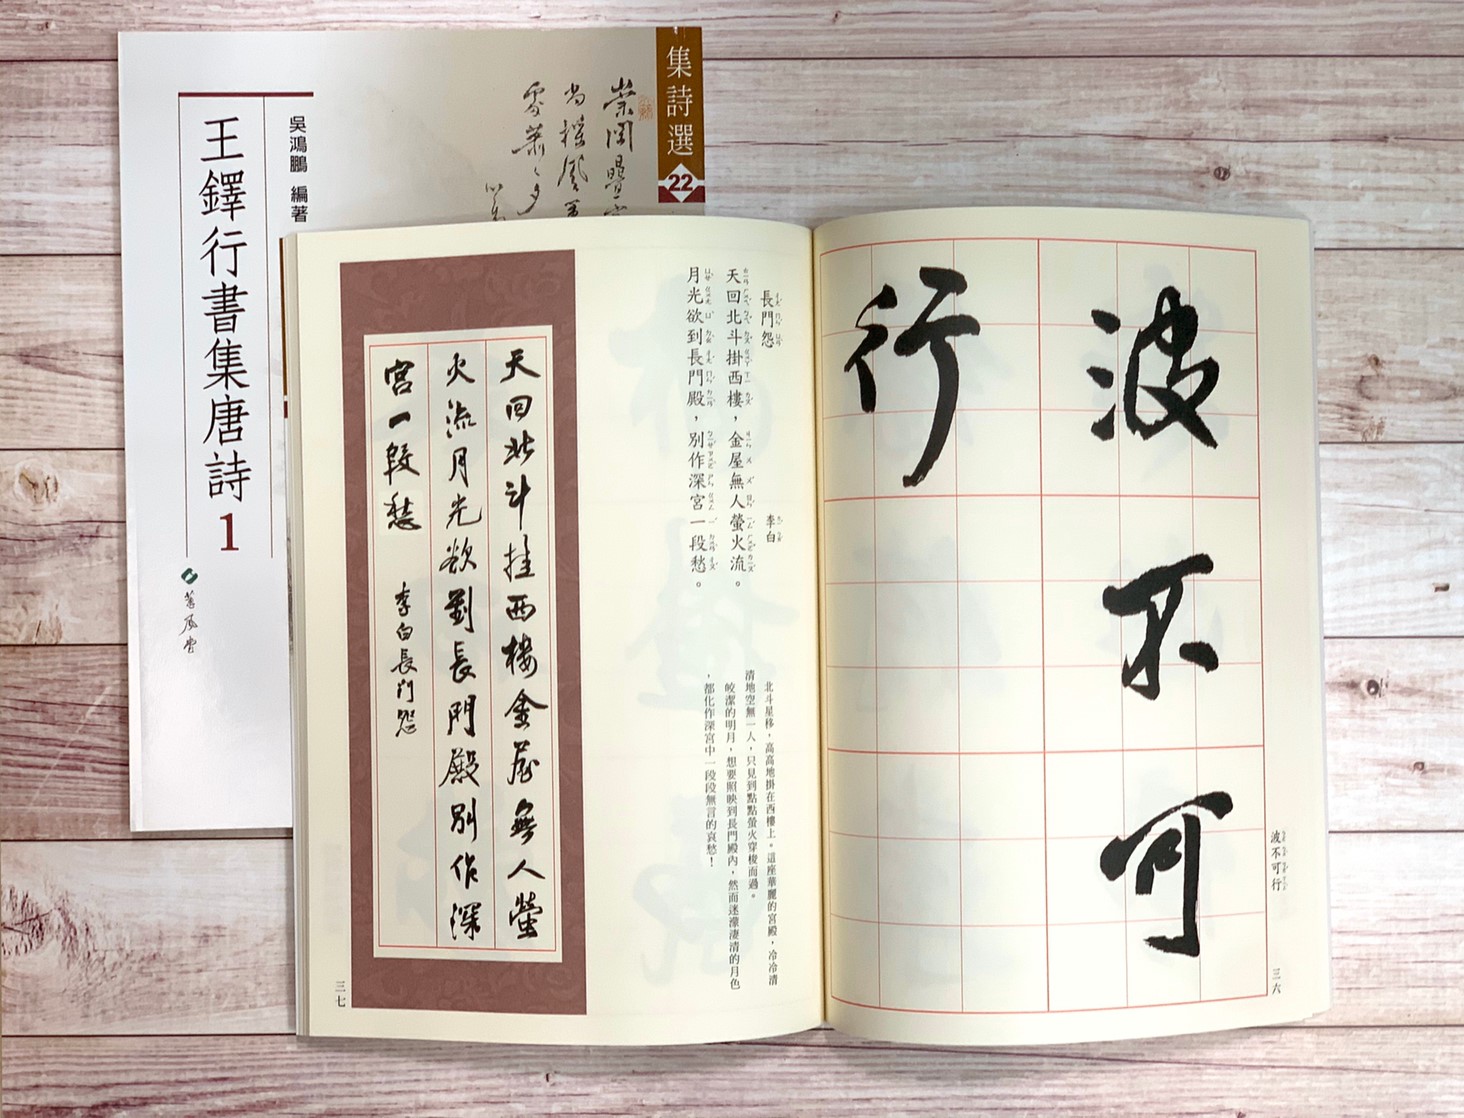 集詩選
22
吳鴻鵬 編著
王鐸行書集唐詩1
蕙風堂
波不可
行
波不可行
三六
長門怨
李白
天回北斗掛西樓，金屋無人螢火流。
月光欲到長門殿，別作深宮一段愁。
北斗星移，高高地掛在西樓上。這座華麗的宮殿，冷冷清
清地空無一人，只見到點點螢火穿梭而過。
皎潔的明月，想要照映到長門殿內，然而迷濛淒清的月色
，都化作深宮中一段段無言的哀愁！
天回北斗挂西樓金屋無人螢
火流月光欲到長門殿別作深
宮一段愁 李白長門怨
三七